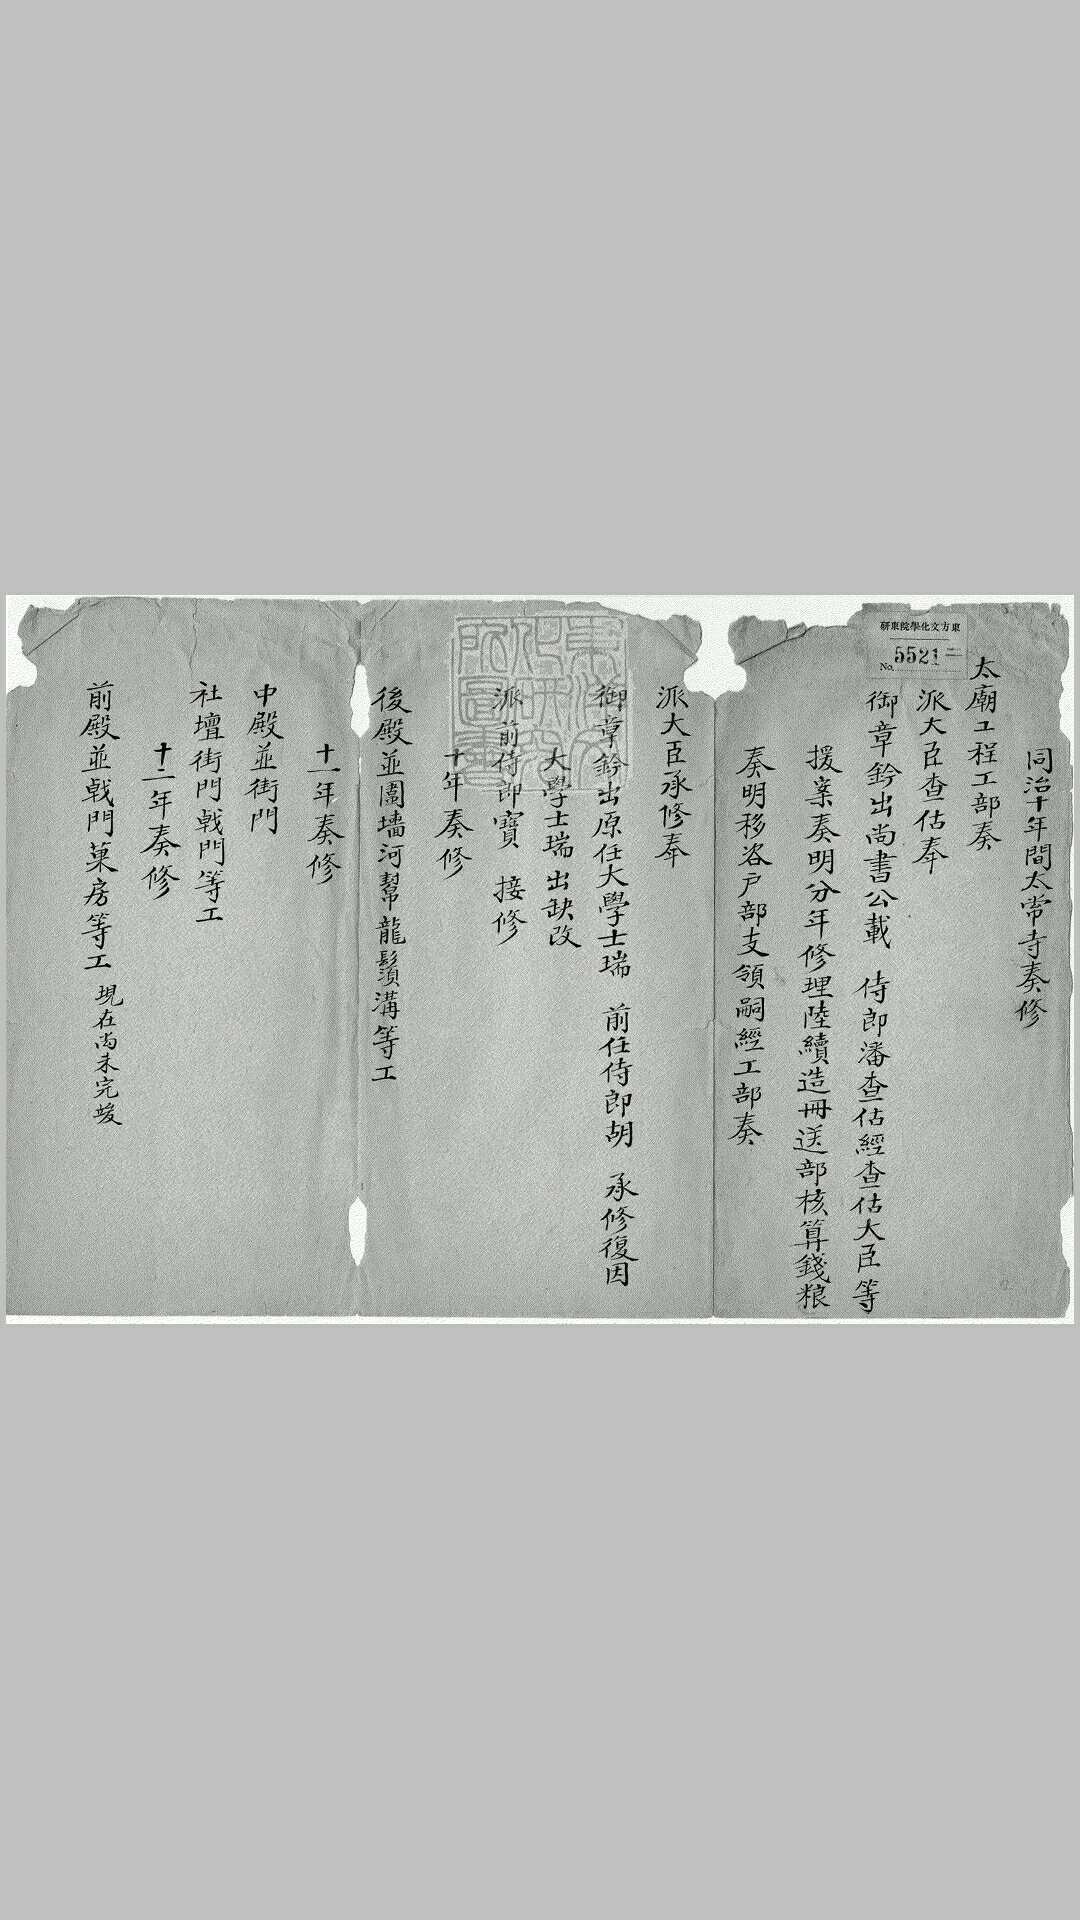 東方文化學院東研
No. 5521
同治十年間太常寺奏修
太廟工程工部奏
派大臣查估奉
御章鈐出尚書公載　侍郎潘查估經查估大臣等
援案奏明分年修理陸續造冊送部核算錢粮
奏明移咨戶部支領嗣經工部奏
派大臣承修奉
御章鈐出原任大學士瑞　前任侍郎胡　承修復因
大學士瑞出缺改
派前侍郎寶　接修
十年奏修
後殿並圍墻河幫龍鬚溝等工
十一年奏修
中殿並街門
社壇街門戟門等工
十二年奏修
前殿並戟門菓房等工現在尚未完竣